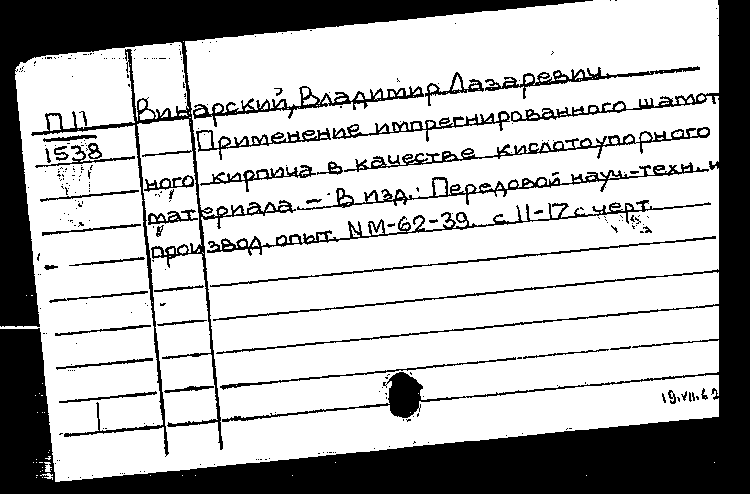 П 11
1538
Винарский, Владимир Лазаревич.
Применение импрегнированного шамот
ного кирпича в качестве кислотоупорного
материала. – В изд.: Передовой науч.-техн. и
производ. опыт. NM-62-39. с. 11-17 с черт.
19.VII.62